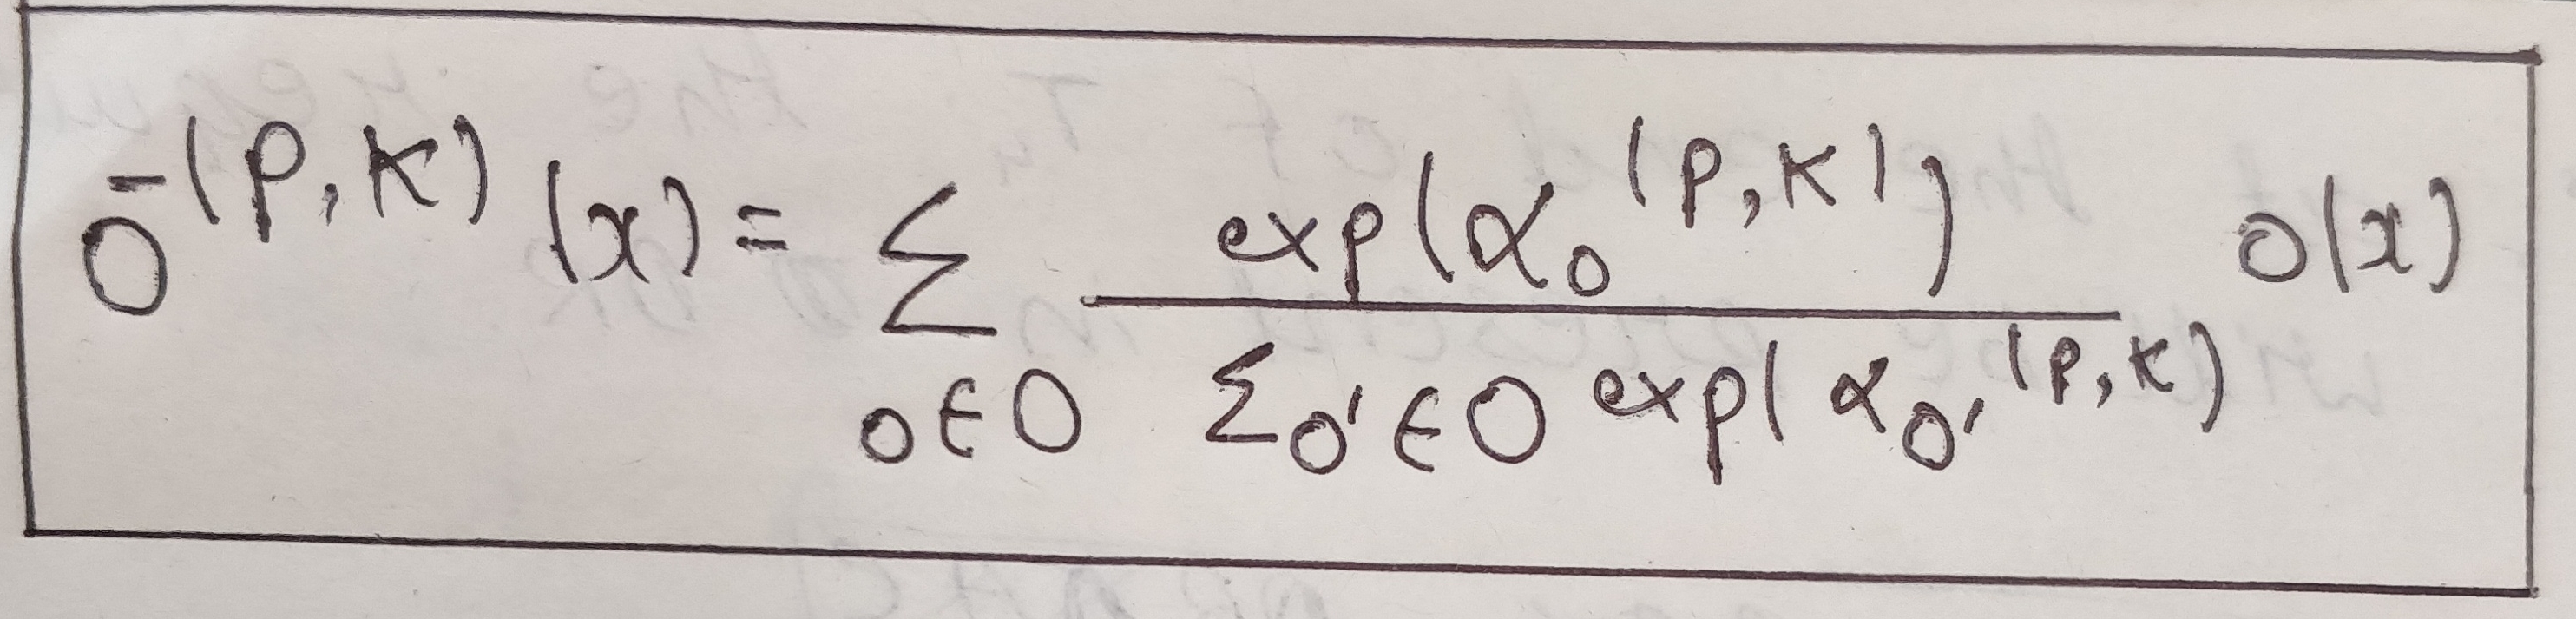 ō^(P,K) (x) = Σ_{o∈O} exp(α_o^(P,K)) / Σ_{o'∈O} exp(α_{o'}^(P,K) o(x)